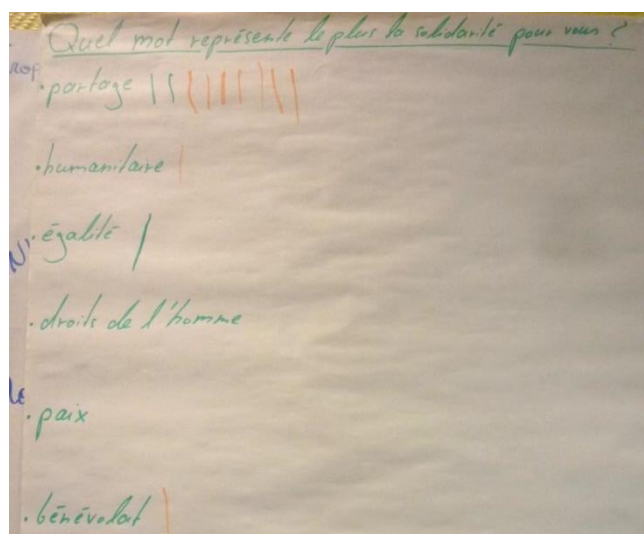 Quel mot représente le plus la solidarité pour vous ?
· partage
· humanitaire
· égalité
· droits de l'homme
· paix
· bénévolat